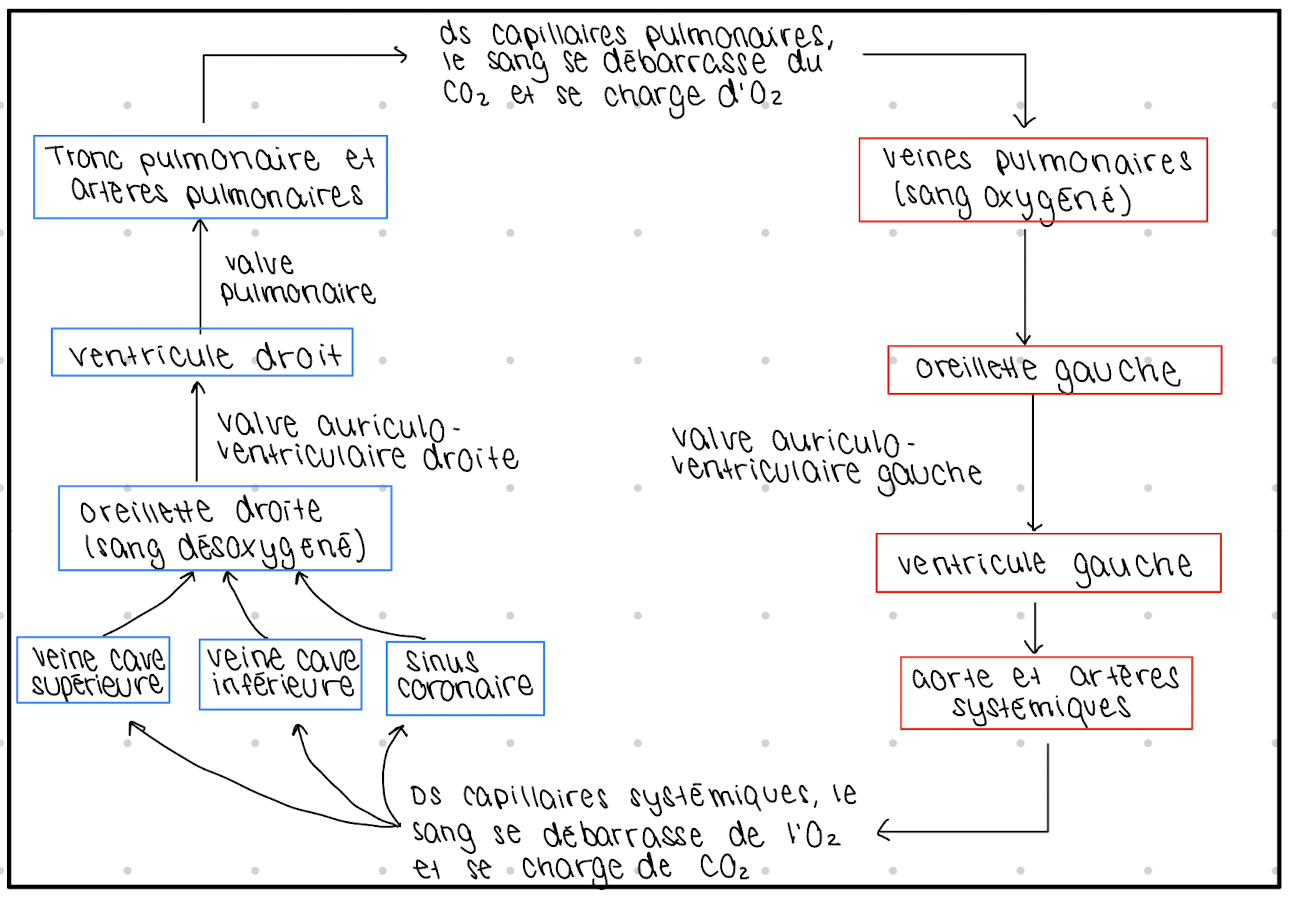 ds capillaires pulmonaires,
le sang se débarrasse du
CO₂ et se charge d'O₂
Tronc pulmonaire et
artères pulmonaires
veines pulmonaires
(sang oxygéné)
valve
pulmonaire
ventricule droit
oreillette gauche
valve auriculo-
ventriculaire droite
valve auriculo-
ventriculaire gauche
oreillette droite
(sang désoxygéné)
ventricule gauche
veine cave
supérieure
veine cave
inférieure
sinus
coronaire
aorte et artères
systémiques
Ds capillaires systémiques, le
sang se débarrasse de l'O₂
et se charge de CO₂